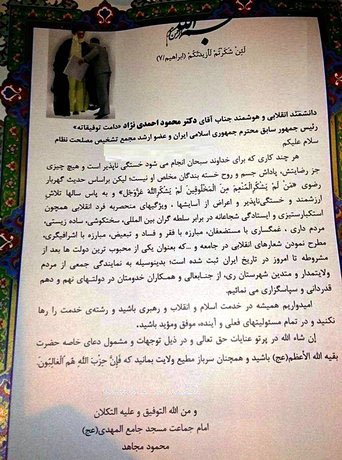 لَئِنْ شَکَرْتُمْ لَأَزِیدَنَّکُمْ (ابراهیم/۷)
دانشمند انقلابی و هوشمند جناب آقای دکتر محمود احمدی نژاد «دامت توفیقاته»
رئیس جمهور سابق محترم جمهوری اسلامی ایران و عضو ارشد مجمع تشخیص مصلحت نظام
سلام علیکم
هر چند کاری که برای خداوند سبحان انجام می شود خستگی ناپذیر است و هیچ چیزی
جز رضایتش، پاداش جسم و روح خسته بندگان مخلص او نیست؛ لیکن براساس حدیث گهربار
رضوی «مَنْ لَمْ یَشْکُرِالْمُنْعِمَ مِنَ الْمَخْلُوقِینَ لَمْ یَشْکُرِاللهَ عَزَّوَجَلَّ» و به پاس سالها تلاشِ
ارزشمند و خستگی‌ناپذیر و اعراض از آسایشها ، ویژگیهای منحصربه فرد انقلابی همچون
استکبارستیزی و ایستادگی شجاعانه در برابر سلطه گران بین المللی، سختکوشی، ساده زیستی،
مردم داری ، غمگساری با مستضعفان، مبارزه با فقر و فساد و تبعیض، مبارزه با اشرافیگری،
مطرح نمودن شعارهای انقلابی در جامعه و ...که بعنوان یکی از محبوب ترین دولت ها بعد از
مشروطه تا امروز در تاریخ ایران ثبت شده است؛ بدینوسیله به نمایندگی جمعی از مردم
ولایتمدار و متدین شهرستان ری، از جنابعالی و همکاران خدومتان در دولتهای نهم و دهم
قدردانی و سپاسگزاری می نمائیم.
امیدواریم همیشه در خدمت اسلام و انقلاب و رهبری باشید و رشته‌ی خدمت را رها
نکنید و در تمام مسئولیتهای فعلی و آینده، موفق ومؤید باشید.
إن شاء الله در پرتو عنایات حق تعالی و در ذیل توجهات و مشمول دعای خاصه حضرت
بقیه الله الأعظم(عج) باشید و همچنان سرباز مطیع ولایت بمانید که فَإِنَّ حِزْبَ اللهِ هُم الْغَالِبُونَ.
و من الله التوفیق و علیه التکلان
امام جماعت مسجد جامع المهدی(عج)
محمود مجاهد